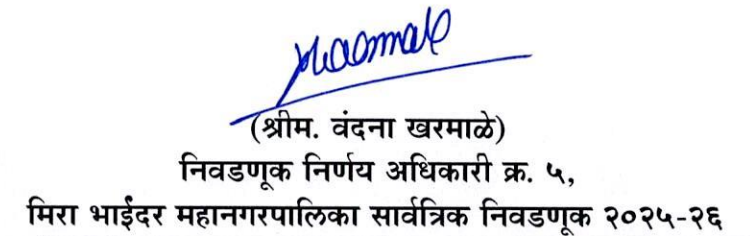 (श्रीम. वंदना खरमाळे)
निवडणूक निर्णय अधिकारी क्र. ५,
मिरा भाईंदर महानगरपालिका सार्वत्रिक निवडणूक २०२५-२६